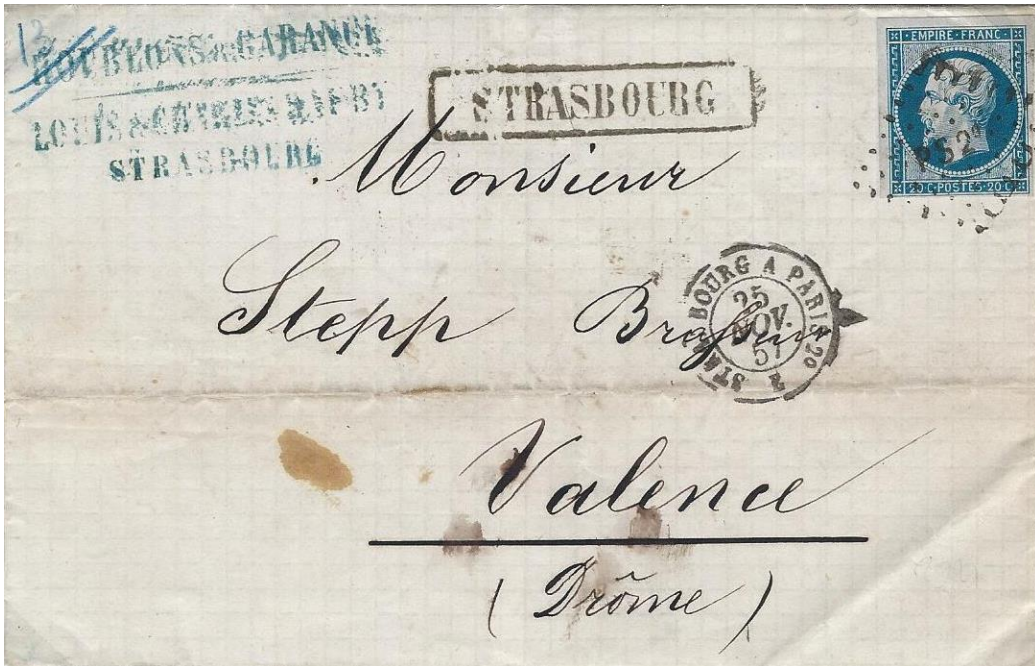 13
HOUBLONS & GARANCE
LOUIS & CHARLES
STRASBOURG
STRASBOURG
EMPIRE FRANC
20 C POSTES 20 C
Monsieur
Stepp Brasseur
STRASBOURG A PARIS 2°
25
NOV.
57
Valence
(Drôme)